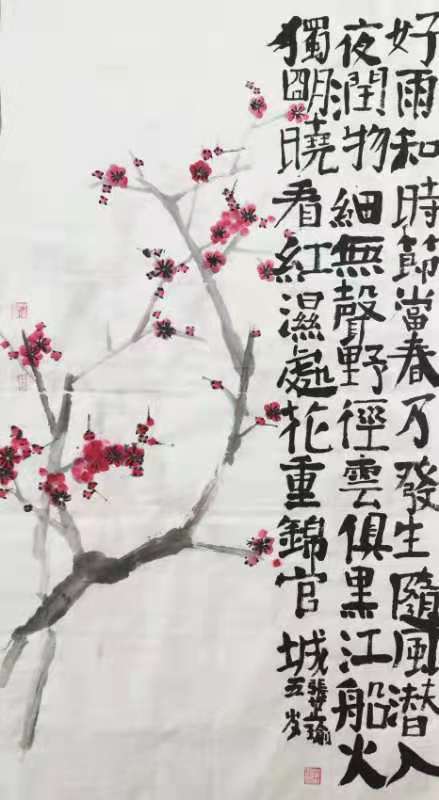 好雨知時節當春乃發生隨風潛入
夜潤物細無聲野徑雲俱黑江船火
獨朙曉看紅濕處花重錦官城
張瑜
五岁